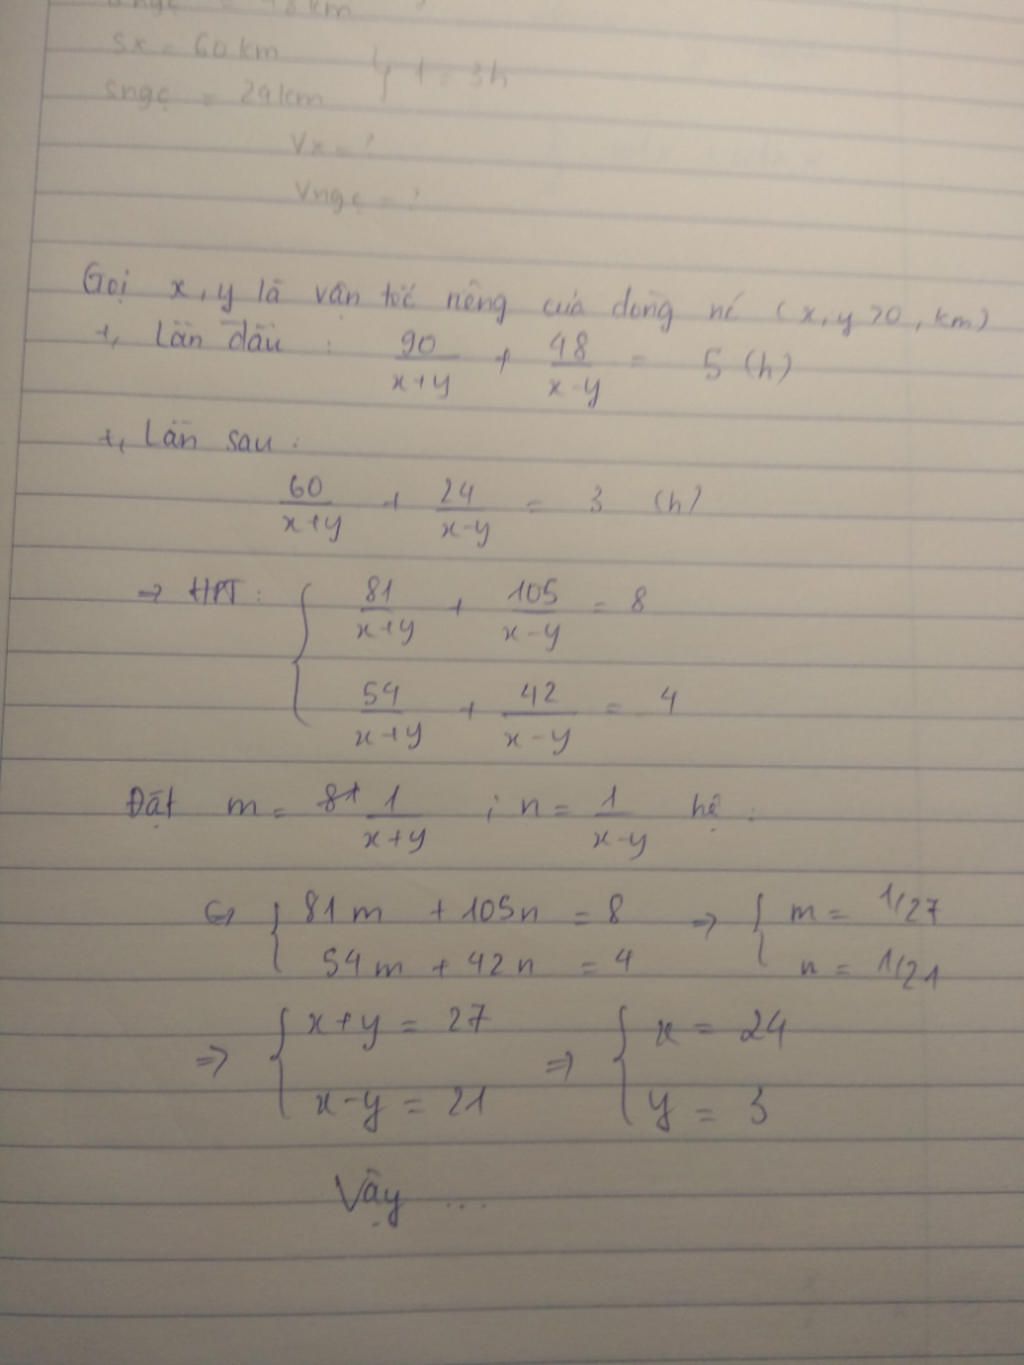 Sngc = 48km
Sx = 60km
Sngc = 24km } t = 3h
Vx = ?
Vngc = ?
Gọi x, y là vận tốc riêng của dòng nc (x, y > 0, km)
+, Lần đầu : 90/(x+y) + 48/(x-y) = 5 (h)
+, Lần sau :
60/(x+y) + 24/(x-y) = 3 (h)
→ HPT : { 81/(x+y) + 105/(x-y) = 8
54/(x+y) + 42/(x-y) = 4
Đặt m = 1/(x+y) ; n = 1/(x-y) hệ :
⇔ { 81m + 105n = 8 ⇒ { m = 1/27
54m + 42n = 4 n = 1/21
⇒ { x+y = 27 ⇒ { x = 24
x-y = 21 y = 3
Vậy ...